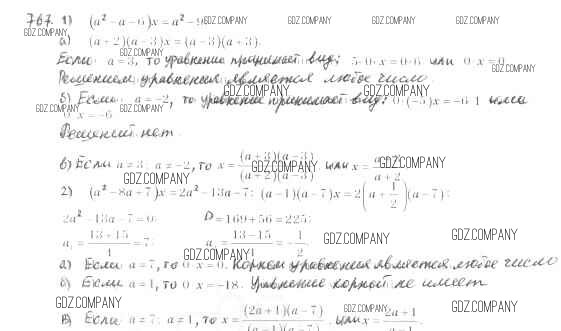 767. 1) (a² - a - 6)x = a² - 9 GDZ.COMPANY GDZ.COMPANY GDZ.COMPANY GDZ.COMPANY
GDZ.COMPANY
а) (a + 2)(a - 3)x = (a - 3)(a + 3).
GDZ.COMPANY
Если a = 3, то уравнение принимает вид: 5·0·x = 0·6 или 0·x = 0.
GDZ.COMPANY
Решением уравнения является любое число.
GDZ.COMPANY GDZ.COMPANY
б) Если a = -2, то уравнение принимает вид: 0·(-5)x = -6·1 или
GDZ.COMPANY GDZ.COMPANY
0·x = -6
Решений нет.
в) Если a = 3; a = -2, то x = (a+3)(a-3)/(a+2)(a-3) или x = /a+2
GDZ.COMPANY GDZ.COMPANY
GDZ.COMPANY
2) (a² - 8a + 7)x = 2a² - 13a - 7; (a - 1)(a - 7)x = 2(a + 1/2)(a - 7);
2a² - 13a - 7 = 0; D = 169 + 56 = 225;
a₁ = 13+15/4 = 7; a₂ = 13-15/4 = -1/2.
GDZ.COMPANY GDZ.COMPANY
GDZ.COMPANY
а) Если a = 7, то 0·x = 0. Корнем уравнения является любое число
б) Если a = 1, то 0·x = -18. Уравнение корней не имеет
GDZ.COMPANY GDZ.COMPANY GDZ.COMPANY
в) Если a = 7; a = 1, то x = (2a+1)(a-7)/(a-1)(a-7) или x = 2a+1/a-1